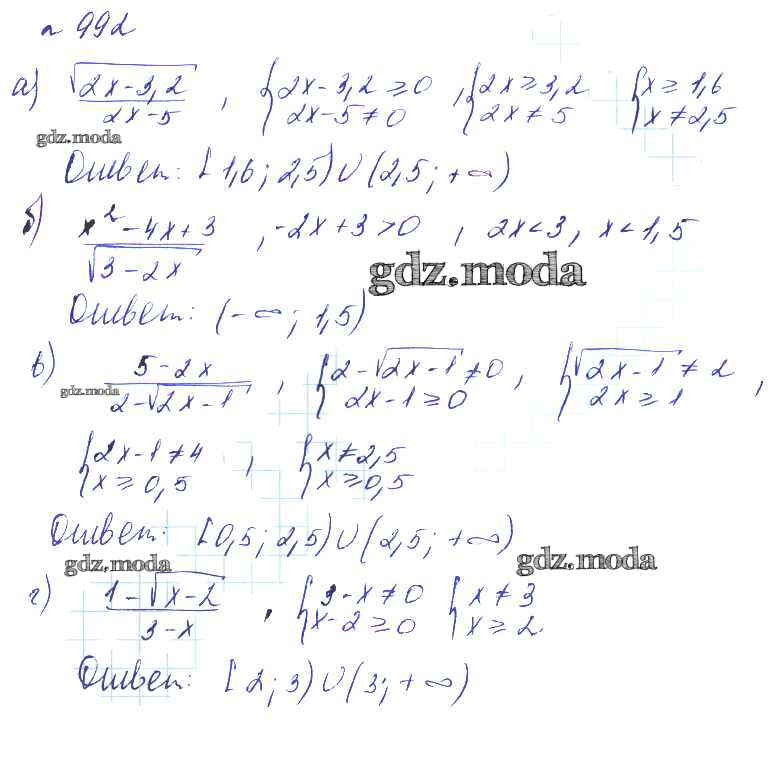 № 992
а) √(2x-3,2) / (2x-5) , {2x-3,2 ≥ 0 2x-5 ≠ 0 , {2x ≥ 3,2 2x ≠ 5 {x ≥ 1,6 x ≠ 2,5
gdz.moda
Ответ: [1,6; 2,5)∪(2,5; +∞)
б) (x² -4x+3) / √(3-2x) , -2x+3 >0 , 2x<3, x<1,5
gdz.moda
Ответ: (-∞; 1,5)
в) (5-2x) / (2-√(2x-1)) , {2-√(2x-1) ≠ 0 2x-1 ≥ 0 , {√(2x-1) ≠ 2 2x ≥ 1 ,
gdz.moda
{2x-1 ≠ 4 x ≥ 0,5 , {x ≠ 2,5 x ≥ 0,5
Ответ: [0,5; 2,5)∪(2,5; +∞)
gdz.moda gdz.moda
г) (1-√(x-2)) / (3-x) , {3-x ≠ 0 x-2 ≥ 0 {x ≠ 3 x ≥ 2.
Ответ: [2; 3)∪(3; +∞)